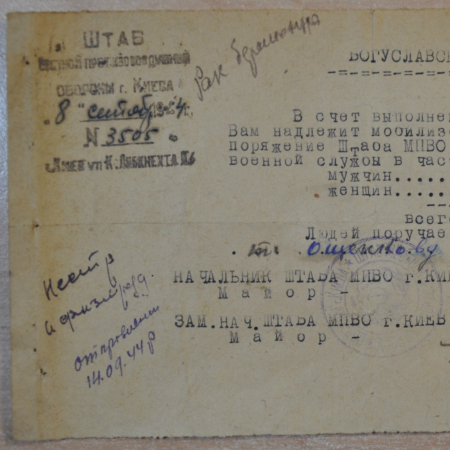 ШТАБ
местной противовоздушной
ОБОРОНЫ г. КИЕВА
"8" сентябр 194
N 3505
г. Киев ул К. Либкнехта
БОГУСЛАВС
-=-=-=-=-=-
В счет выполне
Вам надлежит мобилизо
поряжение Штаба МПВО
военной службы в час
мужчин.....
женщин.....
всег
Людей поручае
т.
НАЧАЛЬНИК ШТАБА МПВО г.КИЕ
Майор -
ЗАМ.НАЧ.ШТАБА МПВО г.КИЕВ
Майор -
отправлен
14.09.44 р